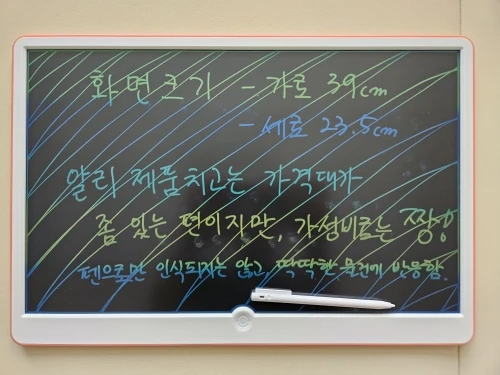 화면크기 - 가로 39cm
- 세로 23.5cm
알리 제품치고는 가격대가
좀 있는 편이지만, 가성비로는 짱!
펜으로만 인식되지는 않고, 딱딱한 물건에 반응함.